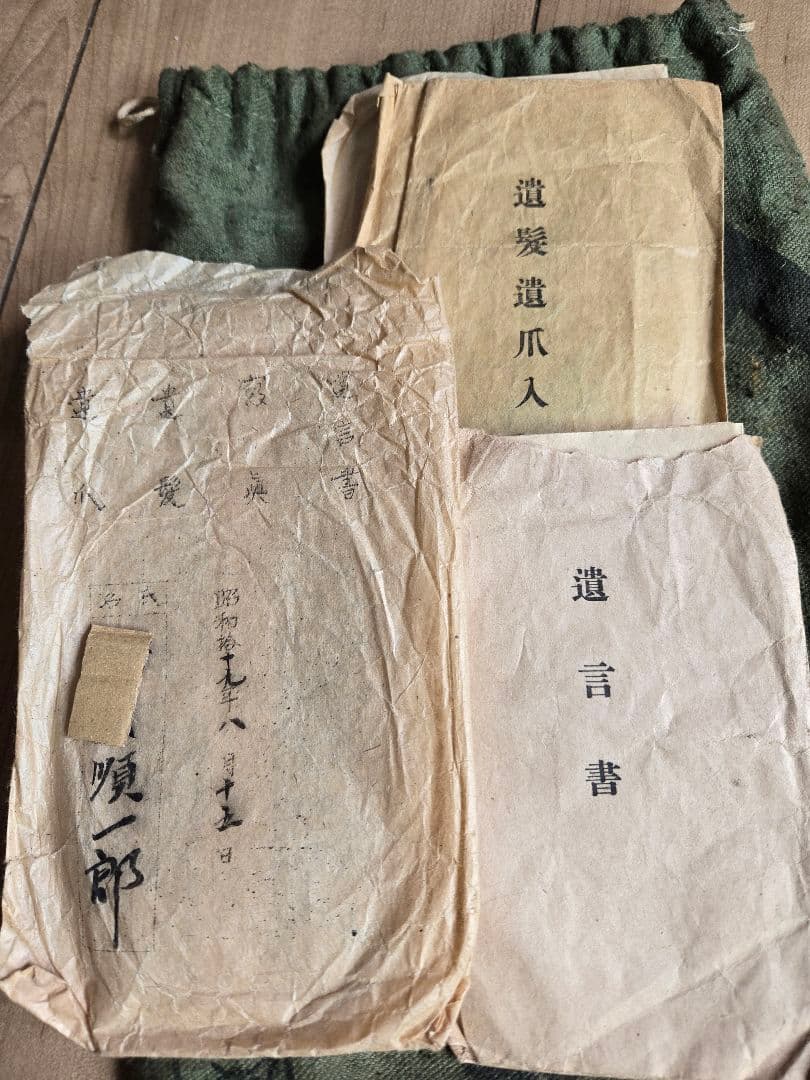 遺髮遺爪入
遺言書
遺言書
寫眞
遺髮
遺爪
昭和拾十九年八月十五日
氏名
順一郎